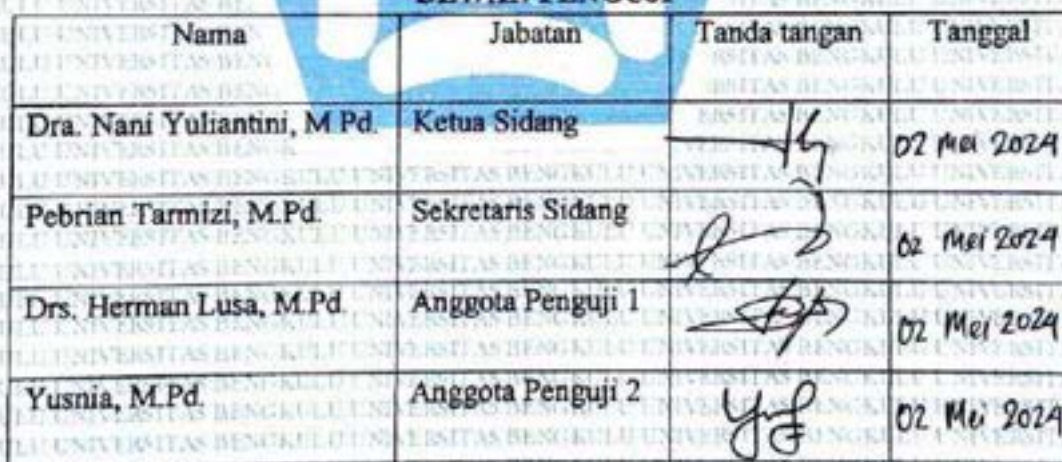 DEWAN PENGUJI
Nama Jabatan Tanda tangan Tanggal
Dra. Nani Yuliantini, M Pd. Ketua Sidang 02 Mei 2024
Pebrian Tarmizi, M.Pd. Sekretaris Sidang 02 Mei 2024
Drs. Herman Lusa, M.Pd. Anggota Penguji 1 02 Mei 2024
Yusnia, M.Pd. Anggota Penguji 2 02 Mei 2024